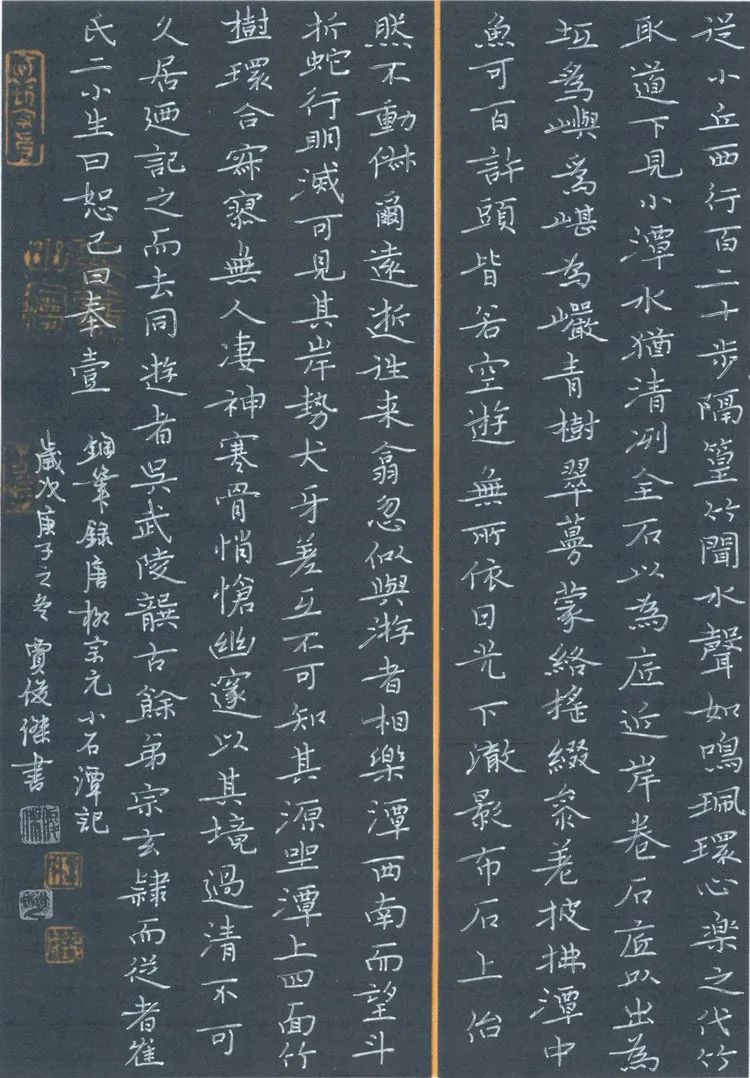 從小丘西行百二十步隔篁竹聞水聲如鳴珮環心樂之伐竹
取道下見小潭水猶清冽全石以為底近岸卷石底以出為
坻為嶼為嵁為巖青樹翠蔓蒙絡搖綴參差披拂潭中
魚可百許頭皆若空遊無所依日光下澈影布石上佁
然不動俶爾遠逝往来翕忽似與游者相樂潭西南而望斗
折蛇行明滅可見其岸勢犬牙差互不可知其源坐潭上四面竹
樹環合寂寥無人凄神寒骨悄愴幽邃以其境過清不可
久居迺記之而去同遊者吳武陵龔古餘弟宗玄隸而從者崔
氏二小生曰恕己曰奉壹
鋼筆錄唐柳宗元小石潭記
歲次庚子之冬賈俊傑書